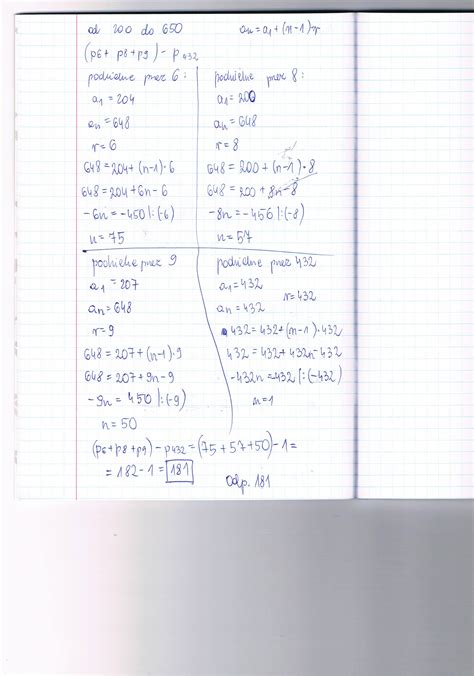 od 200 do 650
an = a1 + (n-1)·r
(p6 + p8 + p9) - p432
podzielne przez 6:
a1 = 204
an = 648
r = 6
648 = 204 + (n-1)·6
648 = 204 + 6n - 6
-6n = -450 |:(-6)
n = 75
podzielne przez 8:
a1 = 200
an = 648
r = 8
648 = 200 + (n-1)·8
648 = 200 + 8n - 8
-8n = -456 |:(-8)
n = 57
podzielne przez 9
a1 = 207
an = 648
r = 9
648 = 207 + (n-1)·9
648 = 207 + 9n - 9
-9n = 450 |:(-9)
n = 50
podzielne przez 432
a1 = 432
r = 432
an = 432
432 = 432 + (n-1)·432
432 = 432 + 432n - 432
-432n = 432 |:(-432)
n = 1
(p6 + p8 + p9) - p432 = (75 + 57 + 50) - 1 =
= 182 - 1 = 181
Odp. 181